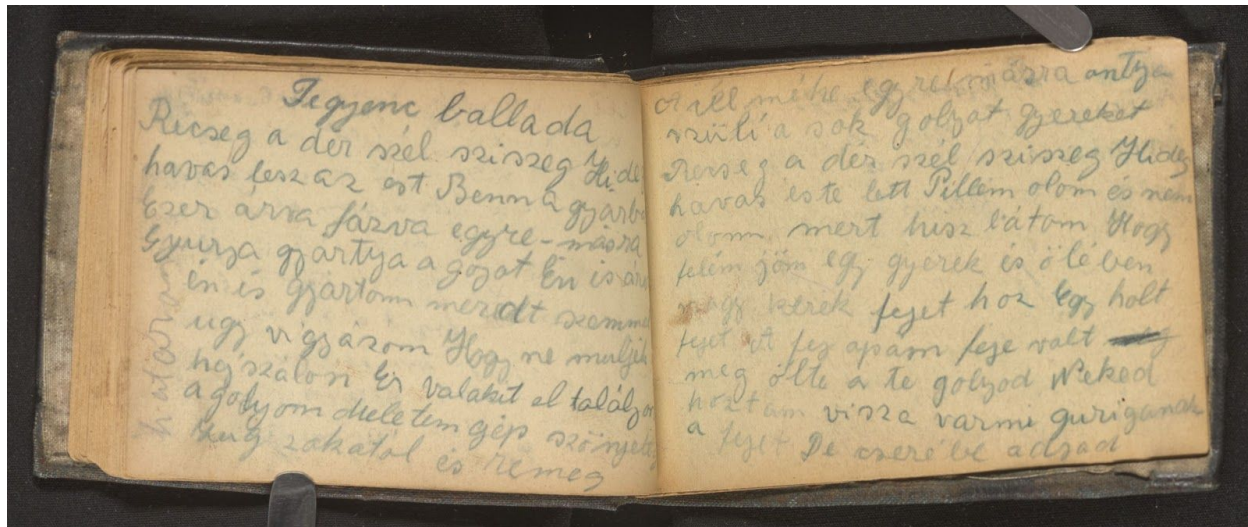 Fegyenc ballada
Ricseg a dér szél sziszeg Hide
havas lesz az est Benn a gyárb
Ezer árva fázva egyre-másra
Gyurja gyartya a gojot Én is
én is gyártom meredt szemme
ugy vigyázom Hogy ne muljék
hajszálon És valakit el találjon
a golyom Meletem gép szörnyeteg
zug zakatol és remeg
határán
A méhe egyre másra ontja
szüli a sok golyot gyereket
Recseg a dér szél sziszeg Hideg
havas este lett Pillém olom és nem
olom mert hisz látom Hogy
felém jöm egy gyerek és ölében
nagy kerek fejet hoz Egy holt
fejet A fej apám feje volt
meg ölte a te golyod Neked
hoztam visza varrni guriganak
a fejet De cserébe adjad